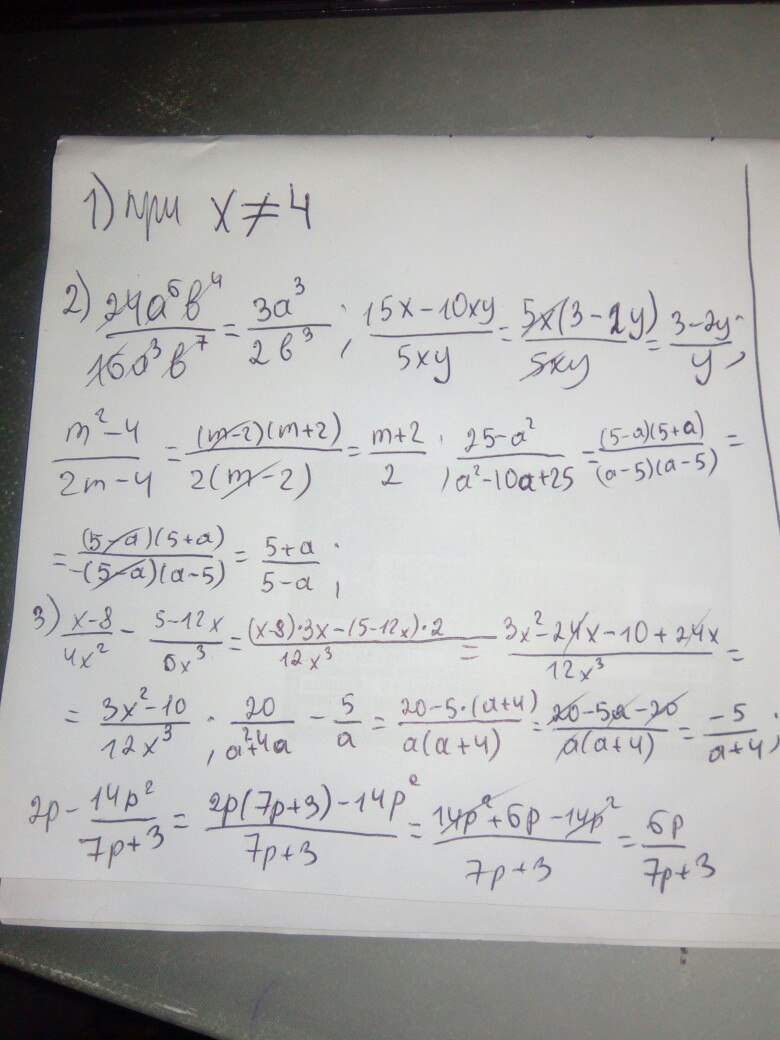 1) при x ≠ 4
2) 24a⁶b⁴/16a³b⁷ = 3a³/2b³; 15x-10xy/5xy = 5x(3-2y)/5xy = 3-2y/y;
m²-4/2m-4 = (m-2)(m+2)/2(m-2) = m+2/2; 25-a²/a²-10a+25 = (5-a)(5+a)/(a-5)(a-5) =
= (5-a)(5+a)/-(5-a)(a-5) = 5+a/5-a;
3) x-8/4x² - 5-12x/6x³ = (x-8)·3x-(5-12x)·2/12x³ = 3x²-24x-10+24x/12x³ =
= 3x²-10/12x³; 20/a²+4a - 5/a = 20-5·(a+4)/a(a+4) = 20-5a-20/a(a+4) = -5/a+4;
2p - 14p²/7p+3 = 2p(7p+3)-14p²/7p+3 = 14p²+6p-14p²/7p+3 = 6p/7p+3